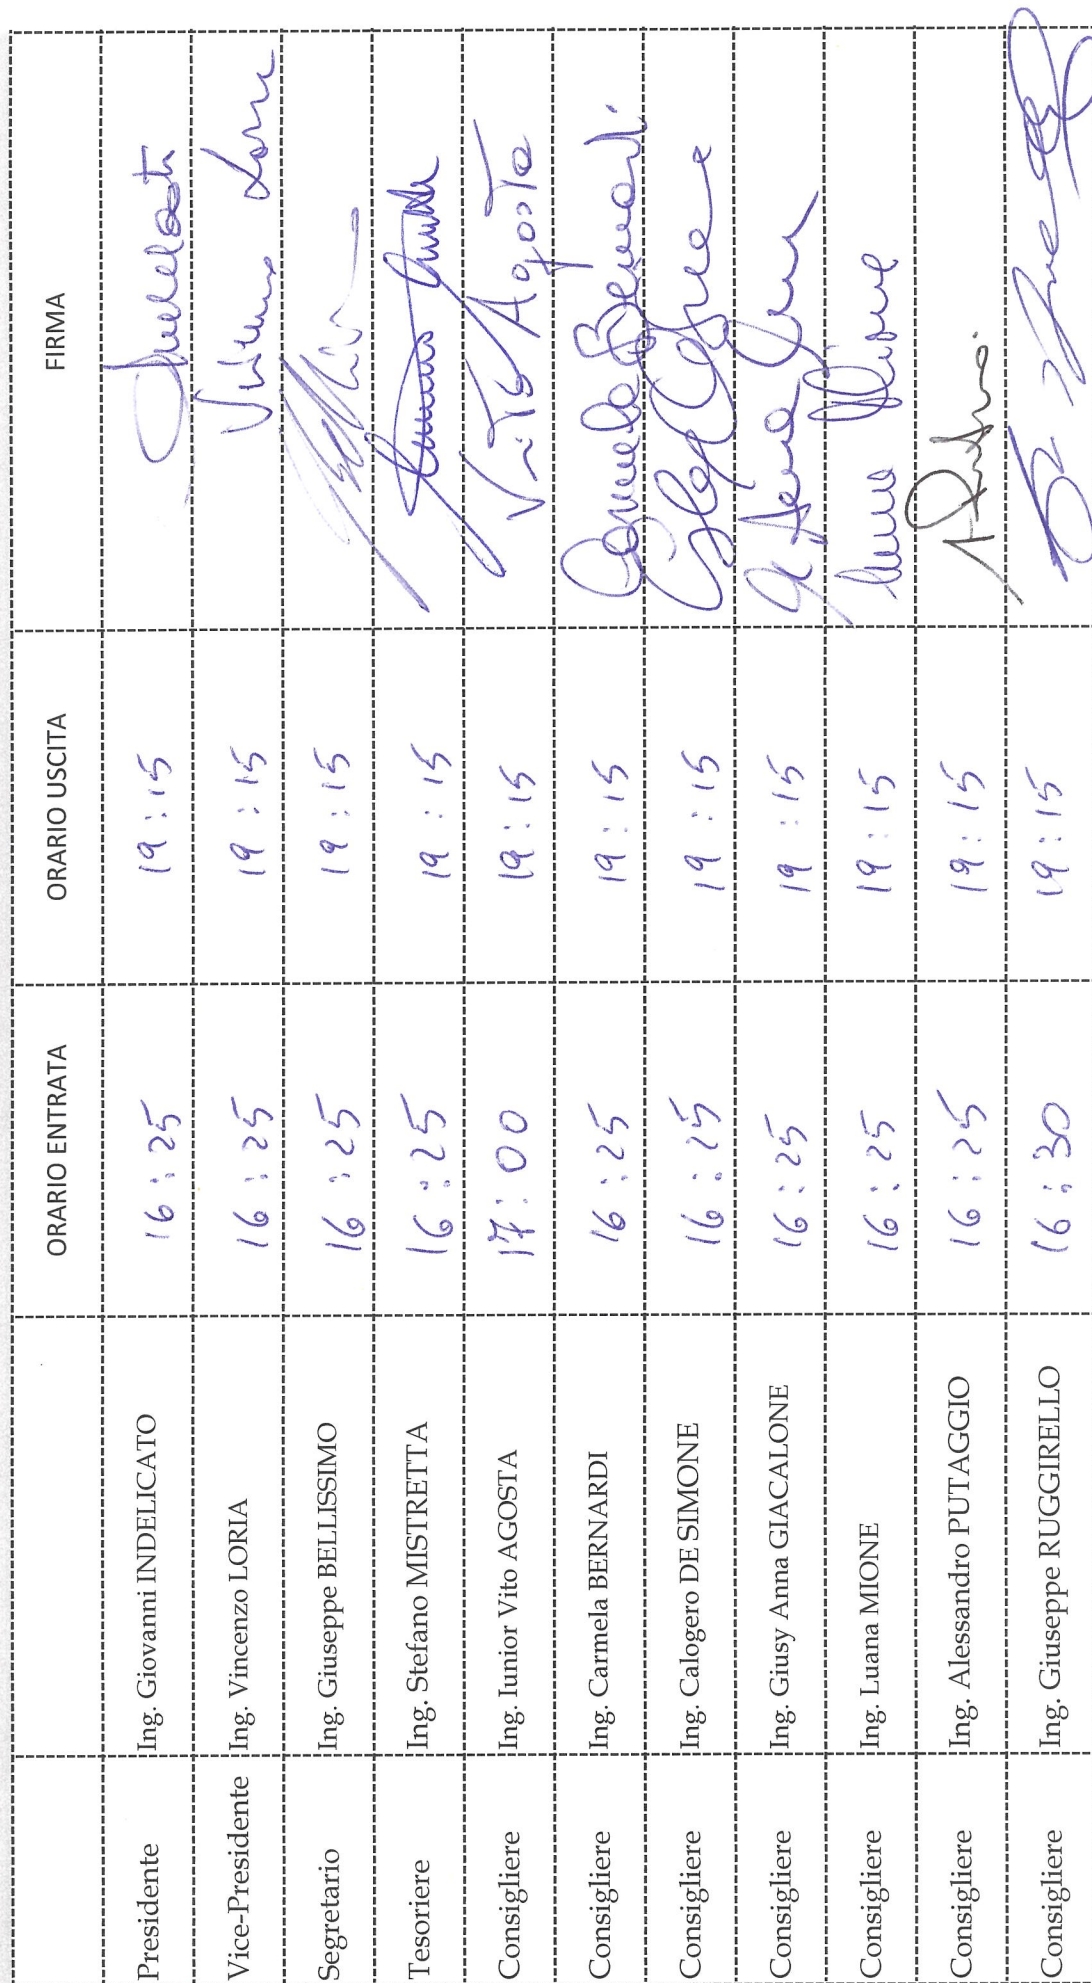 ORARIO ENTRATA ORARIO USCITA FIRMA
Presidente Ing. Giovanni INDELICATO 16:25 19:15
Vice-Presidente Ing. Vincenzo LORIA 16:25 19:15
Segretario Ing. Giuseppe BELLISSIMO 16:25 19:15
Tesoriere Ing. Stefano MISTRETTA 16:25 19:15
Consigliere Ing. Iunior Vito AGOSTA 17:00 19:15 Vito Agosta
Consigliere Ing. Carmela BERNARDI 16:25 19:15 Carmela Bernardi
Consigliere Ing. Calogero DE SIMONE 16:25 19:15
Consigliere Ing. Giusy Anna GIACALONE 16:25 19:15
Consigliere Ing. Luana MIONE 16:25 19:15
Consigliere Ing. Alessandro PUTAGGIO 16:25 19:15
Consigliere Ing. Giuseppe RUGGIRELLO 16:30 19:15